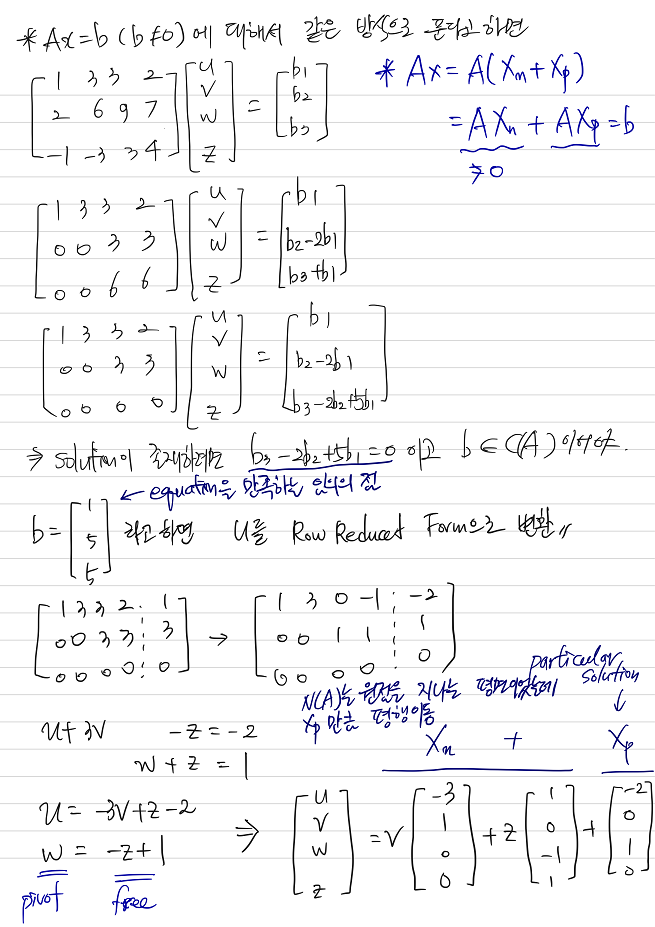 * Ax=b (b≠0) 에 대해서 같은 방식으로 푼다고 하면
[1 3 3 2; 2 6 9 7; -1 -3 3 4] [u; v; w; z] = [b1; b2; b3]
* Ax = A(Xn + Xp)
= AXn + AXp = b
[1 3 3 2; 0 0 3 3; 0 0 6 6] [u; v; w; z] = [b1; b2-2b1; b3+b1]
[1 3 3 2; 0 0 3 3; 0 0 0 0] [u; v; w; z] = [b1; b2-2b1; b3-2b2+5b1]
⇒ solution이 존재하려면 b3-2b2+5b1=0 이고 b∈C(A) 이어야.
← equation을 만족하는 임의의 점
b = [1; 5; 5] 라고 하면 U를 Row Reduced Form으로 변환
[1 3 3 2 ⋮ 1; 0 0 3 3 ⋮ 3; 0 0 0 0 ⋮ 0] → [1 3 0 -1 ⋮ -2; 0 0 1 1 ⋮ 1; 0 0 0 0 ⋮ 0]
N(A)는 원점을 지나는 평면이었는데
Xp 만큼 평행이동
particular
solution
↓
Xn + Xp
u+3v -z = -2
w+z = 1
u = -3v+z-2
w = -z+1
pivot free
⇒ [u; v; w; z] = v [-3; 1; 0; 0] + z [1; 0; -1; 1] + [-2; 0; 1; 0]